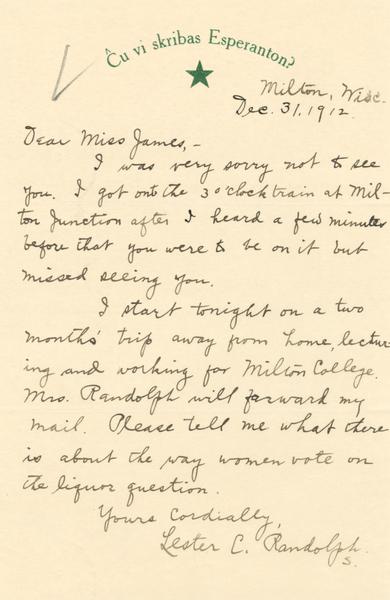 Ĉu vi skribas Esperanton?
Milton, Wisc.
Dec. 31, 1912.
Dear Miss James,-
I was very sorry not to see
you. I got onto the 3 o'clock train at Mil-
ton Junction after I heard a few minutes
before that you were to be on it but
missed seeing you.
I start tonight on a two
months' trip away from home, lectur-
ing and working for Milton College.
Mrs. Randolph will forward my
mail. Please tell me what there
is about the way women vote on
the liquor question.
Yours Cordially,
Lester C. Randolph.
S.